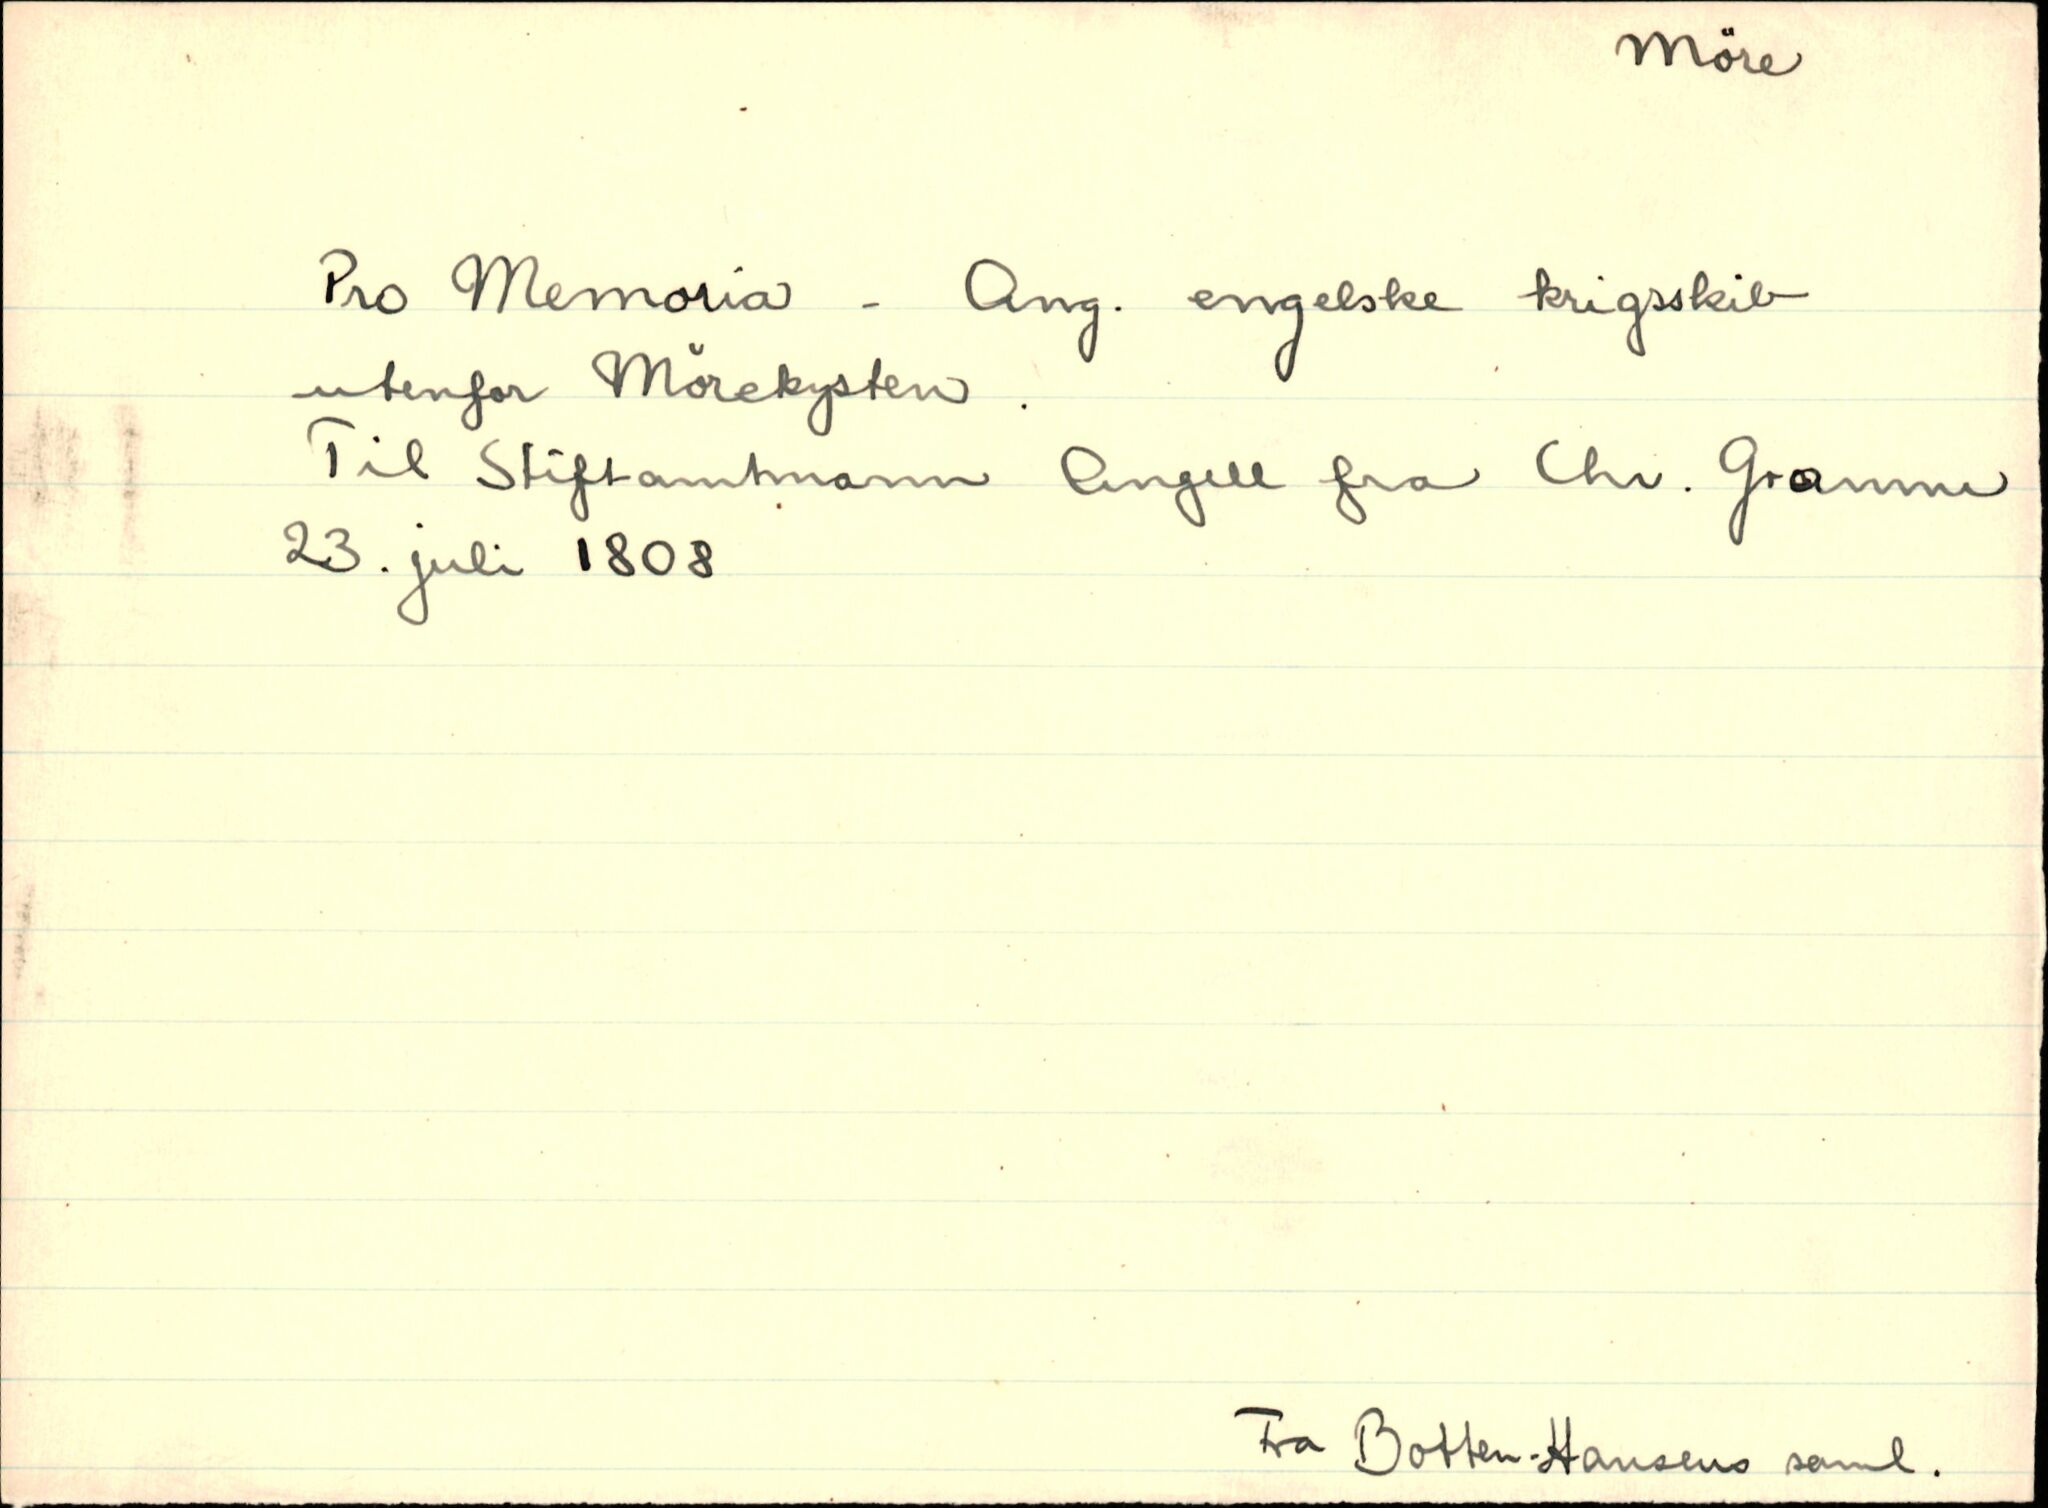 Möre
Pro Memoria - Ang. engelske krigsskib
utenfor Mörekysten.
Til Stiftamtmann Angell fra Chr. Gramm
23. juli 1808
Fra Botten-Hansens saml.